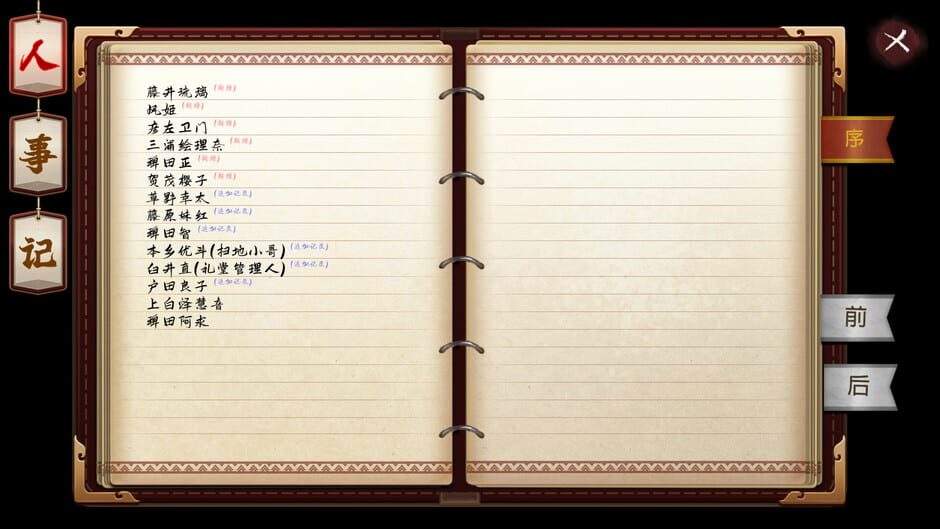 人
事
记
藤井琉璃(新增)
(新增)
彦左卫门(新增)
三浦绘理奈(新增)
稗田正(新增)
贺茂樱子(新增)
草野幸太(追加记录)
藤原妹红(追加记录)
稗田智(追加记录)
本乡优斗(扫地小哥)(追加记录)
臼井直(礼堂管理人)(追加记录)
户田良子(追加记录)
上白泽慧音
稗田阿求
序
前
后